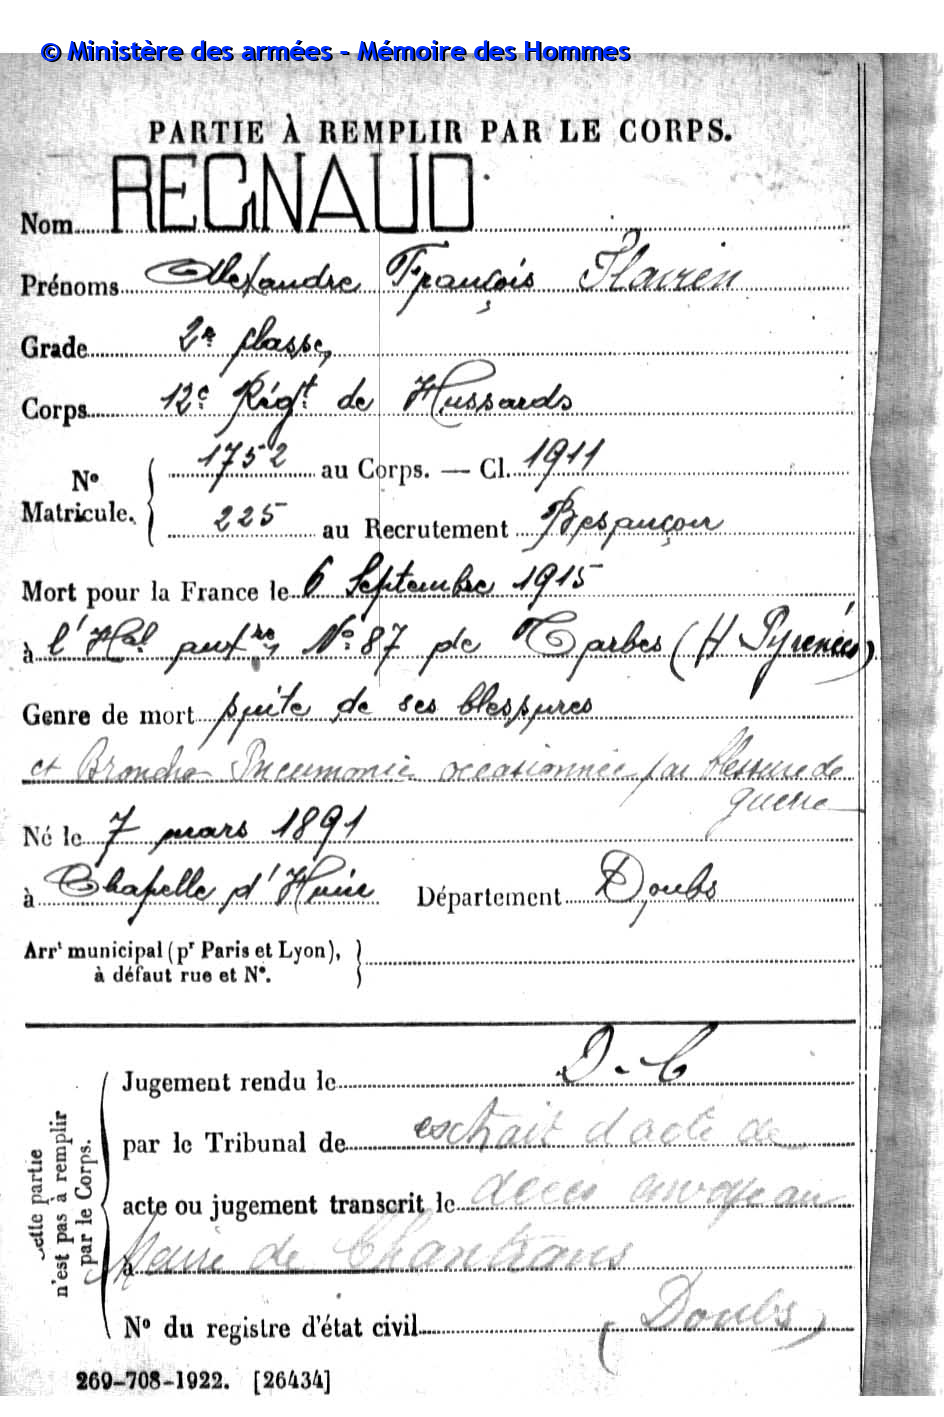 © Ministère des armées - Mémoire des Hommes
PARTIE À REMPLIR PAR LE CORPS.
Nom REGNAUD
Prénoms Alexandre François Flavien
Grade 2e classe,
Corps 12e Régt de Hussards
No Matricule. 1752 au Corps. — Cl. 1911
225 au Recrutement Besançon
Mort pour la France le 6 Septembre 1915
à l'Hal auxre No 87 de Tarbes (H Pyrénées)
Genre de mort suite de ses blessures
et Broncho Pneumonie occasionnée par blessure de
guerre
Né le 7 mars 1891
à Chapelle d'Huin Département Doubs
Arrt municipal (pr Paris et Lyon),
à défaut rue et No.
Cette partie
n'est pas à remplir
par le Corps.
Jugement rendu le D.C
par le Tribunal de extrait d'acte de
acte ou jugement transcrit le décès envoyé au
à Maire de Chantrans
No du registre d'état civil (Doubs)
269-708-1922. [26434]